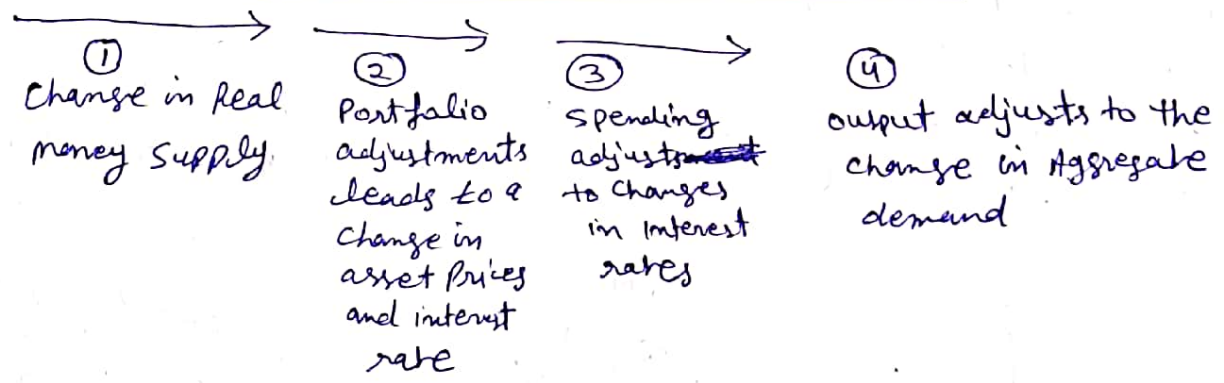 ①
Change in Real
money supply.
②
Portfalio
adjustments
leads to a
change in
asset Prices
and interest
rate
③
Spending
adjusts
to Changes
in Interest
rates
④
output adjusts to the
change in Aggregate
demand